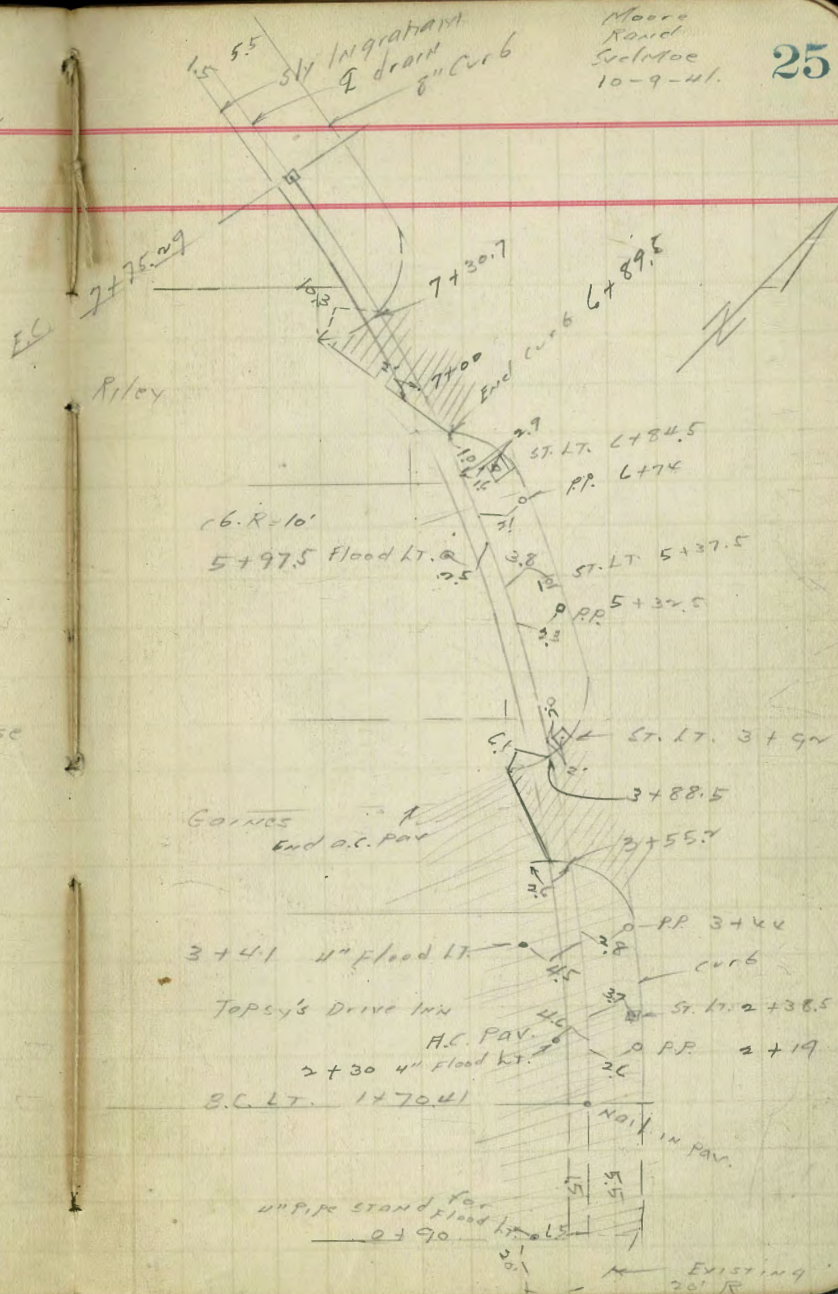 Moore
Rand
10-9-41.
25
1.5 5.5 Sly Ingraham
℄ drain
8" Curb
E.C. 7+75.29
7+30.7
10.3
End Curb 6+89.5
7+00
2'
Riley
2.9
ST. LT. 6+84.5
1.0
1.5
P.P. 6+74
2.1
cb. R=10'
5+97.5 Flood LT.
2.5
3.8
ST. LT. 5+37.5
1.0
P.P. 5+32.5
2.3
se
ST. LT. 3+92
2.0
2'
3+88.5
Gaines
End A.C. Pav
3+55.2
P.P. 3+44
2.8
3+41 4" Flood LT.
4.5
curb
Topsy's Drive Inn
3.7
St. Lt. 2+38.5
4.6
A.C. Pav.
P.P. 2+19
2+30 4" Flood LT.
2.6
B.C. LT. 1+70.41
Nail in Pav.
1.5 5.5
4" Pipe Stand for
Flood LT.
0+90
1.5
Existing
20' R